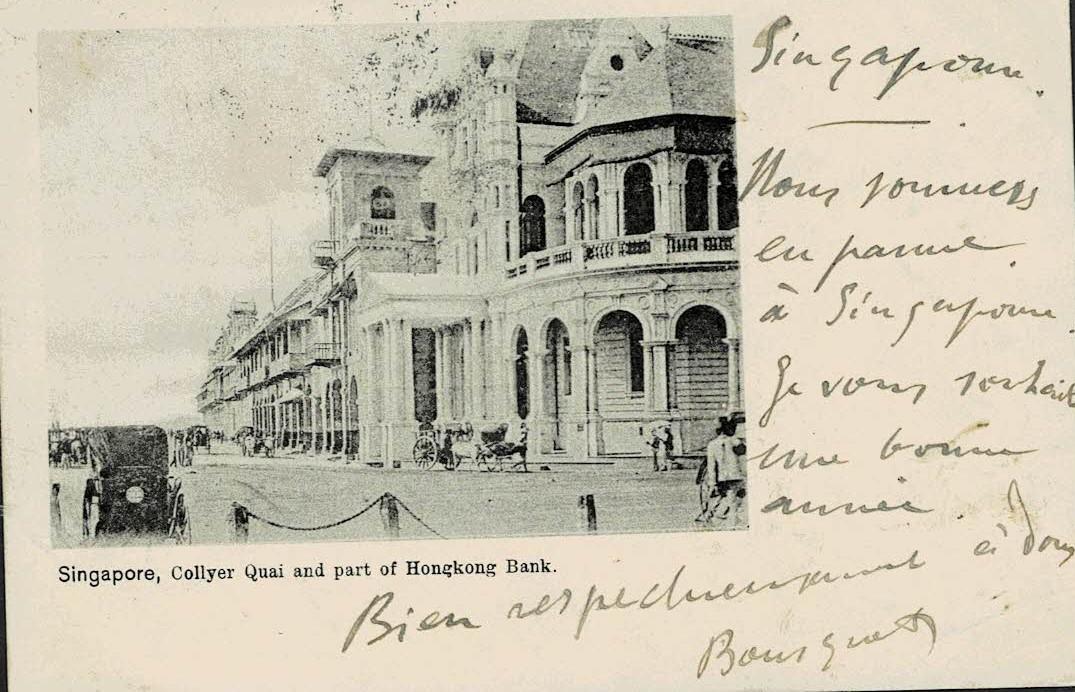 Singapour.
Nous sommes
en panne
à Singapour.
Je vous souhaite
une bonne
année
Singapore, Collyer Quai and part of Hongkong Bank.
Bien respectueusement à vous
Bousquet